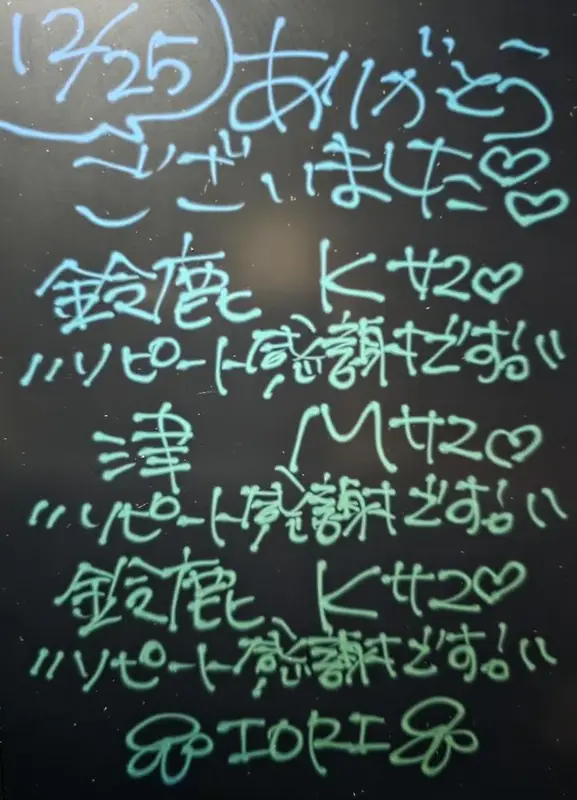 12/25
ありがとう
ございました♡♡
鈴鹿 K サマ♡
〃リピート感謝です!!〃
津 M サマ♡
〃リピート感謝です!!〃
鈴鹿 K サマ♡
〃リピート感謝です!!〃
IORI